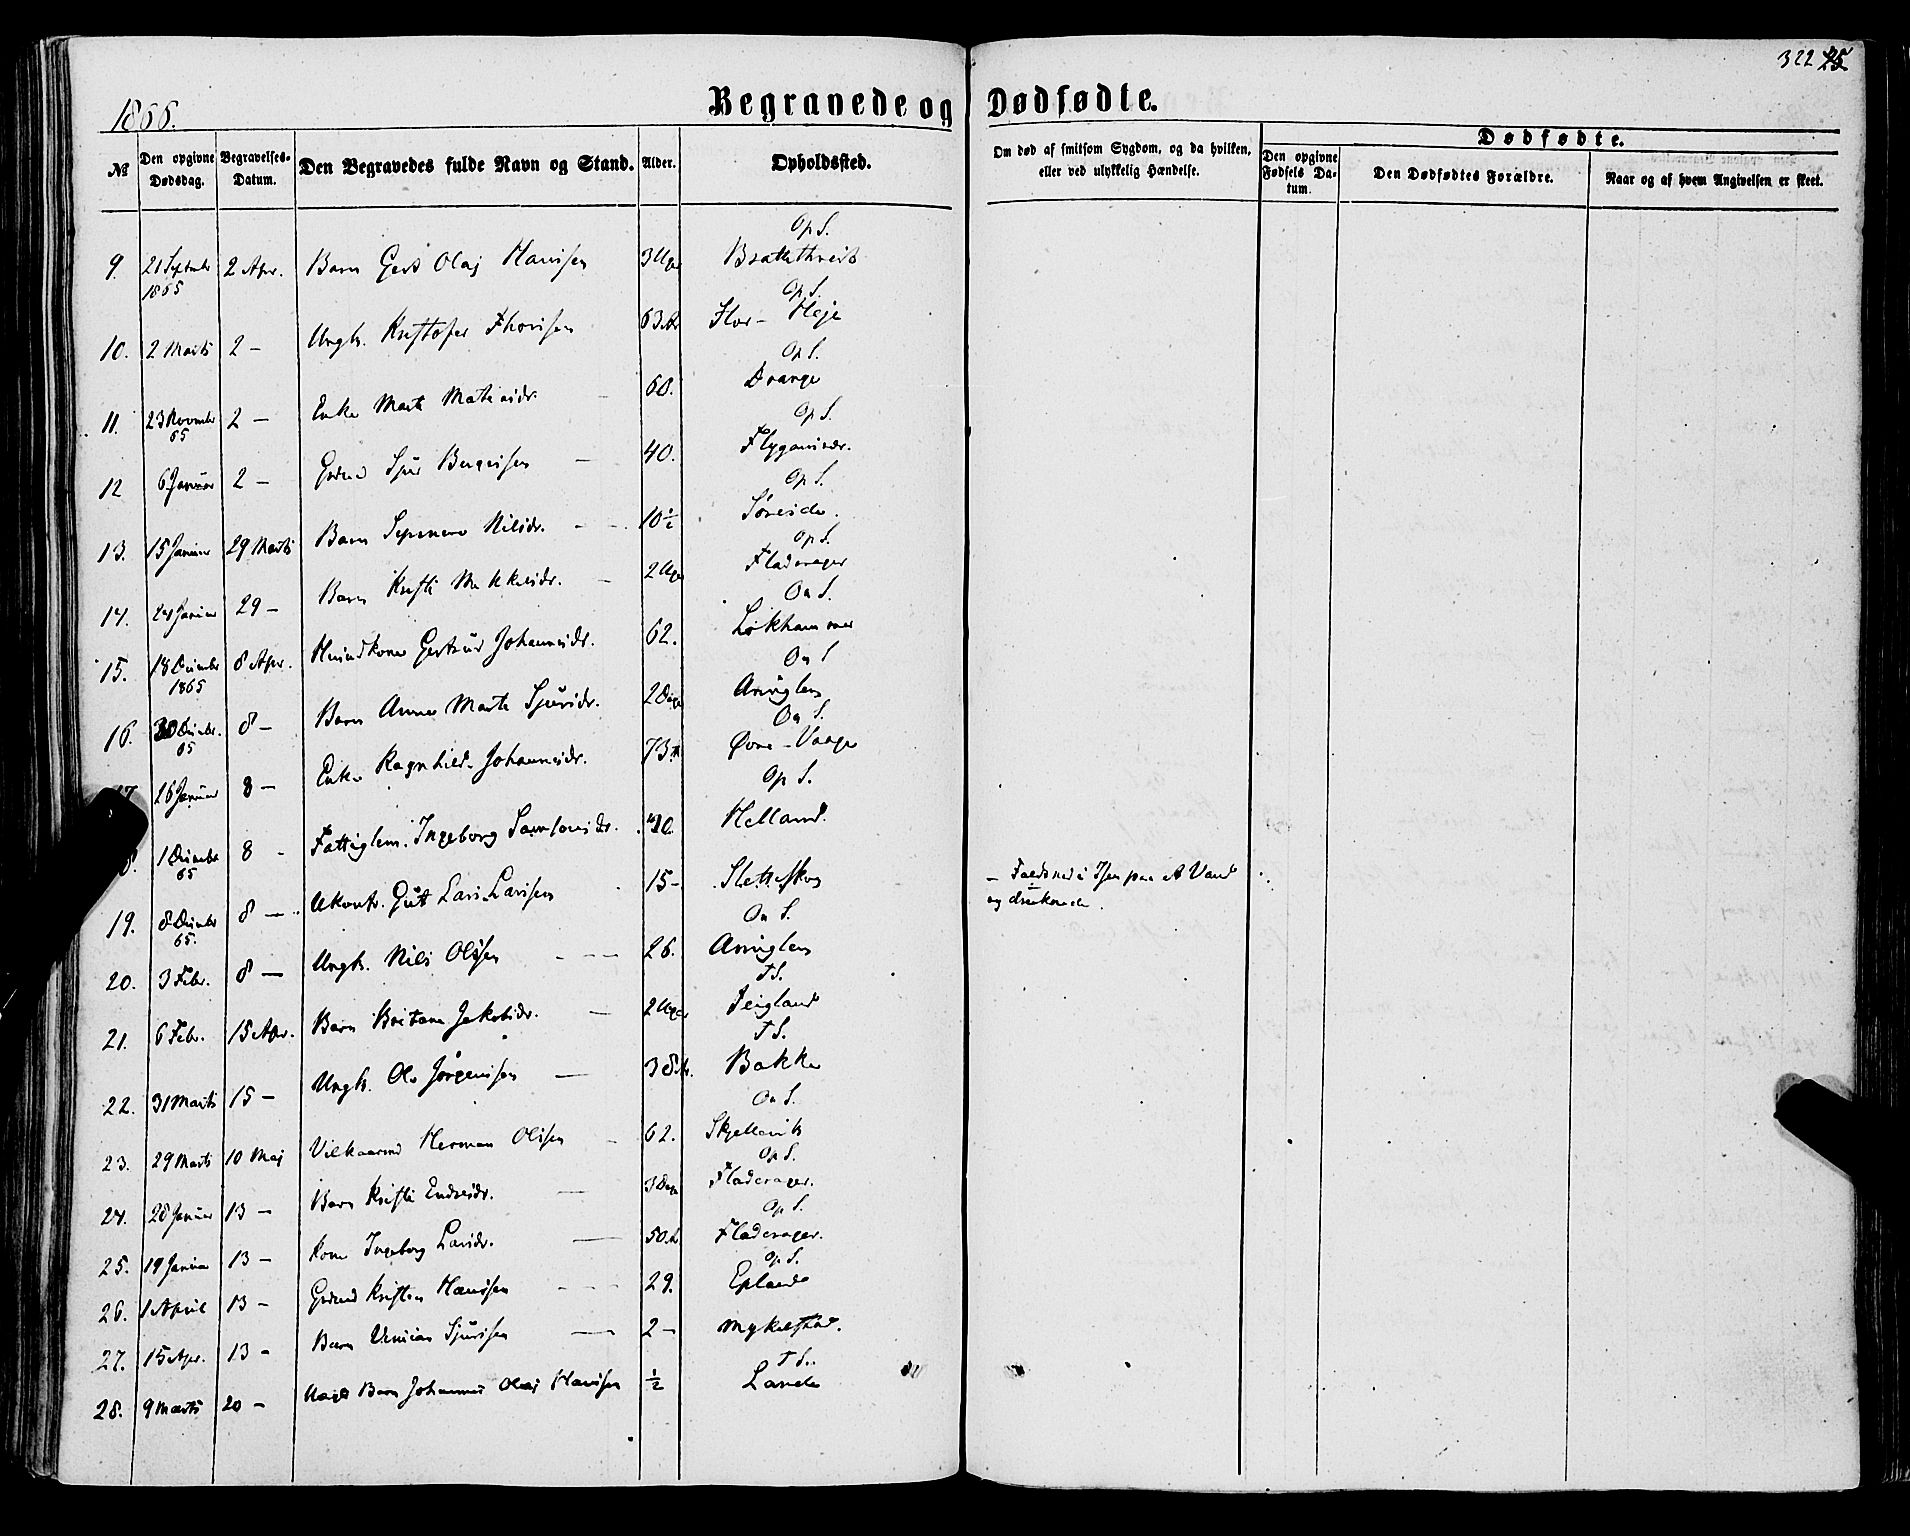 322 25
1866.
Begravede og Dødfødte.
№
Den opgivne Dødsdag.
Begravelses-Datum.
Den Begravedes fulde Navn og Stand.
Alder.
Opholdssted.
Om død af smitsom Sygdom, og da hvilken, eller ved ulykkelig Hændelse.
Dødfødte.
Den opgivne Fødsels Datum.
Den Dødfødtes Forældre.
Naar og af hvem Angivelsen er skeet.
Op S.
9. 21 Septmbr 1865 2 Apr. Barn Gert Olaj Hansen 3 Uger Brattthveit
Op S.
10. 2 Marts 2 — Ungk. Kristofer Thorisen 63 Flor- Heje
Op S.
11. 23 Novmbr 65 2 — Enke Marta 60. Drange
Op S.
12 6 Januar 2 — Gdmd Sjur 40.
Op S.
13. 15 Januar 29 Marts Barn Nilsdr. 10½ Søreide.
Op S.
14. 24 Januar 29 — Barn Kristi Mikkelsdr. — 2 Uger Fladerager
On S.
15. 18 Decmbr 1865 8 Apr. Huusdkone Gertrud Johannesdr. 62. Løkhammer
On S
16. 30 Decmbr. 65 8 — Barn Anna Marta Sjursdr. 2 Dage
On S.
17 26 Januar 8 — Enke Ragnhild Johannesdr. 73 Øvre-Vaage
Op S.
8. 1 Decmbr 65 8 - Fattiglem. Ingeborg Samsonsdr. Helland.
19. 8 Decmbr 65. 8 — Gut Lars Larsen 15 — Sletteskog — Faldt ned i Isen paa et Vand og druknede.
On S.
20. 3 Febr. 8 — Ungk. Nils Olsen — 26.
T S.
21. 6 Febr. 15 Apr. Barn Britane Jakobsdr. — 2 Uger Teigland
T S.
22. 31 Marts 15 — Ungk. Ole Jørgensen — 38 Bakke
On S.
23. 29 Marts 10 Maj Vilkaarmd Herman Olsen — 62. Skjellevik
Op S.
24. 28 Januar 13 — Barn Kristi Endresdr. — 3 Dage Fladerager.
Op S.
25. 19 Januar 13 — Kone Ingeborg Larsdr. — 50. Fladerager.
Op S.
26. 1 April 13 — Gdmd Kristen Hansen — 29. Eplande
27. 15 Apr. 13 — Barn Sjursen — 2 — Mykelstad.
T S.
28. 9 Marts 20 — Barn Johannes Olaj Hansen ½ Lande